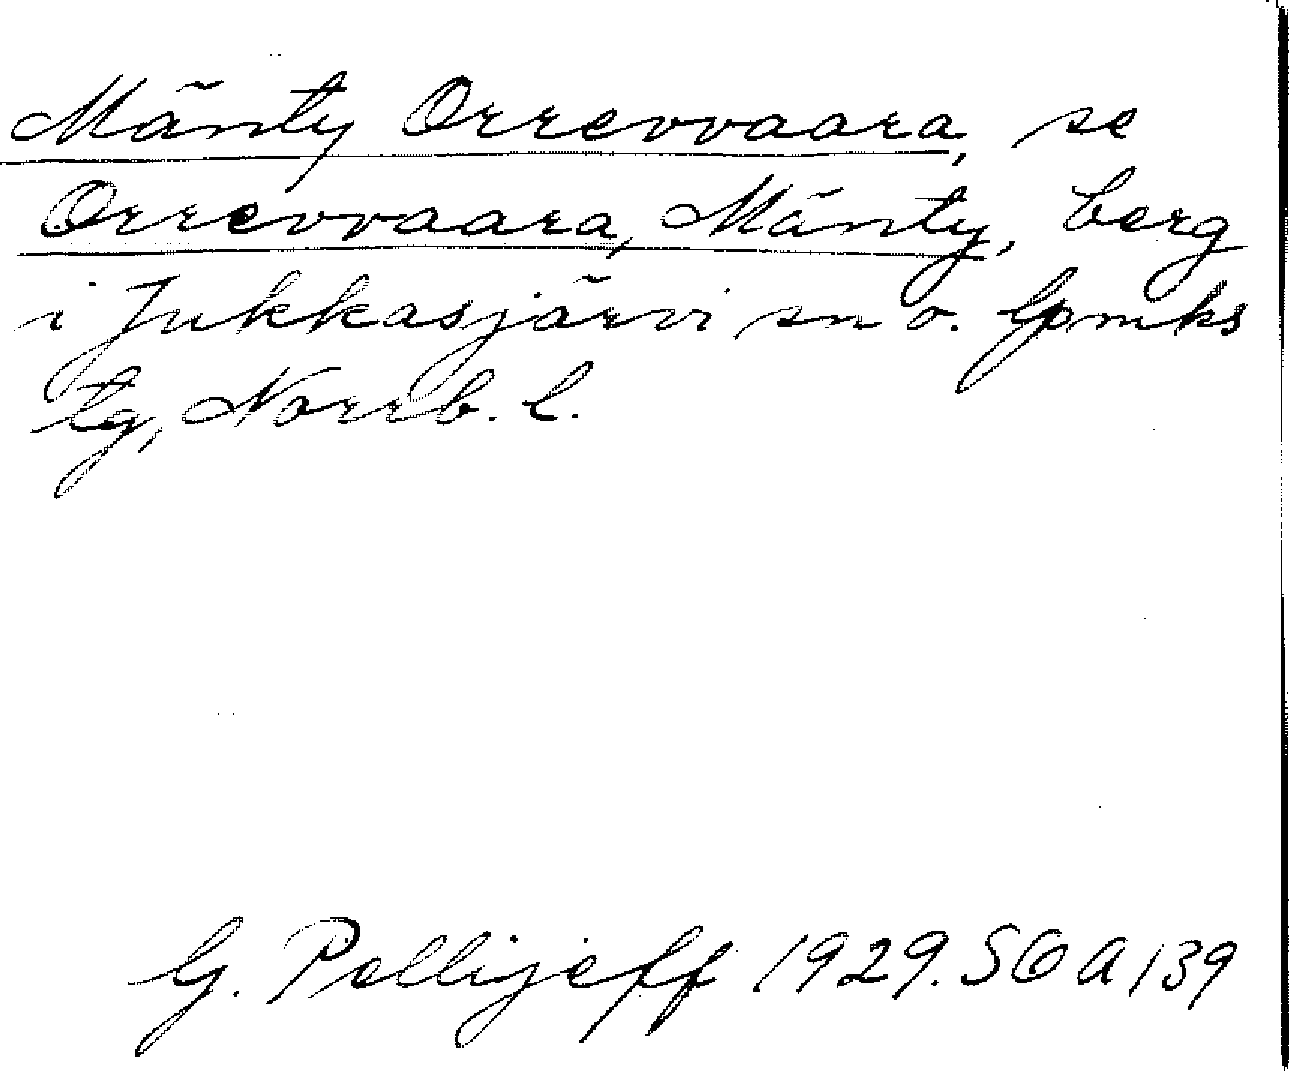 Mänty Orrevvaara, se
Orrevvaara, Mänty, berg
i Jukkasjärvi sn o. lpmks
tg, Norrb. l.
G. Pellijeff 1929. SOA 139